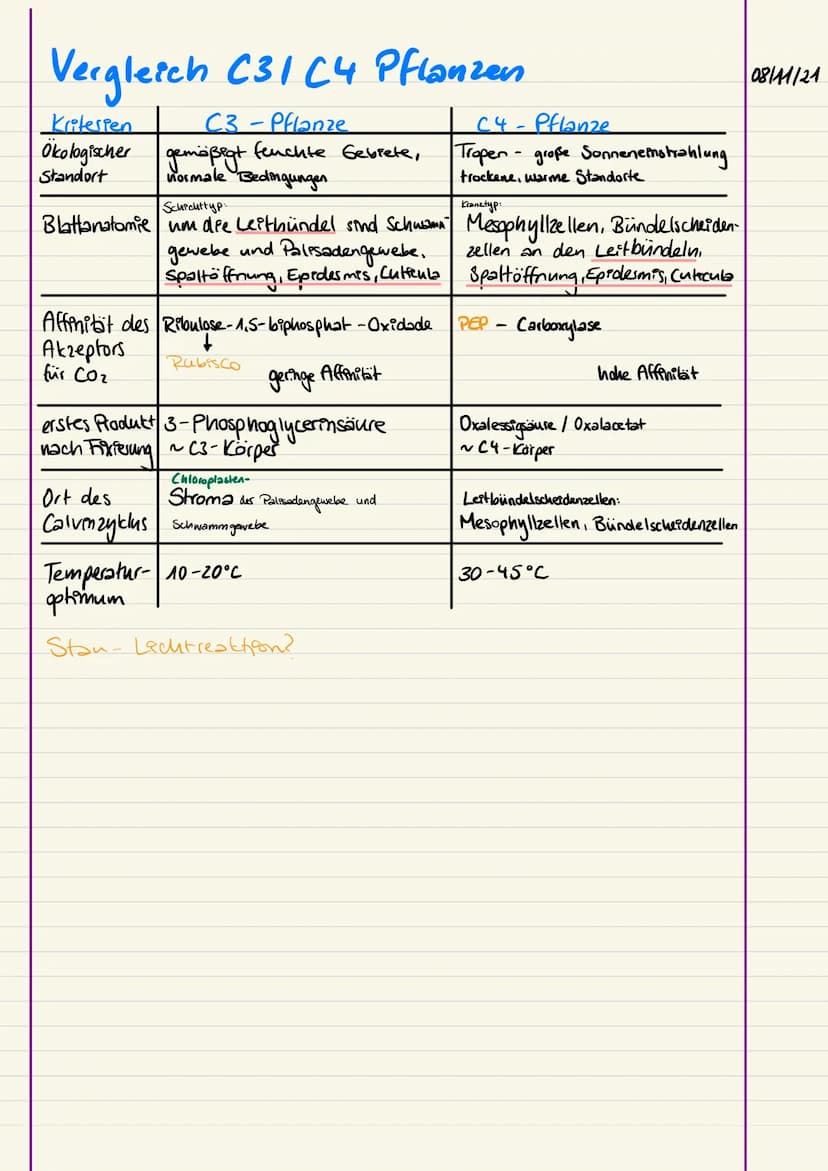 Vergleich C3/C4 Pflanzen
08/11/21
Kriterien C3 - Pflanze C4 - Pflanze
Ökologischer gemäßigt feuchte Gebiete, Tropen - große Sonneneinstrahlung
Standort normale Bedingungen trockene, warme Standorte
Schichttyp: Kranztyp:
Blattanatomie um die Leitbündel sind Schwamm- Mesophyllzellen, Bündelscheiden-
gewebe und Palisadengewebe, zellen an den Leitbündeln,
Spaltöffnung, Epidermis, Cuticula Spaltöffnung, Epidermis, Cuticula
Affinität des Ribulose-1,5-biphosphat-Oxidade PEP - Carboxylase
Akzeptors ↓
für CO₂ Rubisco geringe Affinität hohe Affinität
erstes Produkt 3-Phosphoglycerinsäure Oxalessigsäure / Oxalacetat
nach Fixierung ~ C3-Körper ~ C4-Körper
Chloroplasten-
Ort des Stroma des Palisadengewebe und Leitbündelscheidenzellen:
Calvinzyklus Schwammgewebe Mesophyllzellen, Bündelscheidenzellen
Temperatur- 10-20°C 30-45°C
optimum
Stau - Lichtreaktion?